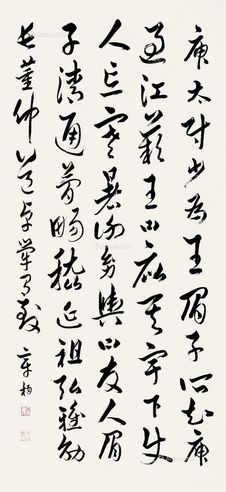 庾太尉少為王眉子所知庾
過江嘆王曰庇其宇下使
人忘寒暑謝幼輿曰友人眉
子清通簡暢嵇延祖弘雅劭
長董仲道卓犖有致